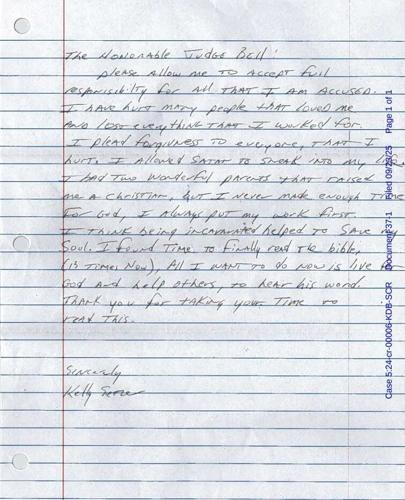 The Honorable Judge Bell:
please allow me to accept full
responscibility for all that I am accused.
I have hurt many people that loved me
and lost everything that I worked for.
I plead forgivness to everyone, that I
hurt. I allowed Satan to sneak into my life.
I had two wonderful parents that raised
me a Christian, but I never made enough time
for God, I always put my work first.
I think being incarcerated helped to save my
soul. I found time to finally read the bible,
(13 times now), All I want to do now is live for
God and help others, to hear his word.
Thank you for taking your time to
read this.
Sincerly
Kelly
Case 5:24-cr-00006-KDB-SCR Document 37-1 Filed 09/29/25 Page 1 of 1